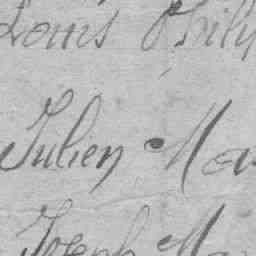 Louis Phily
Julien Ma
Joseph Ma